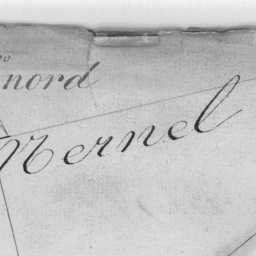 nord
Nernel